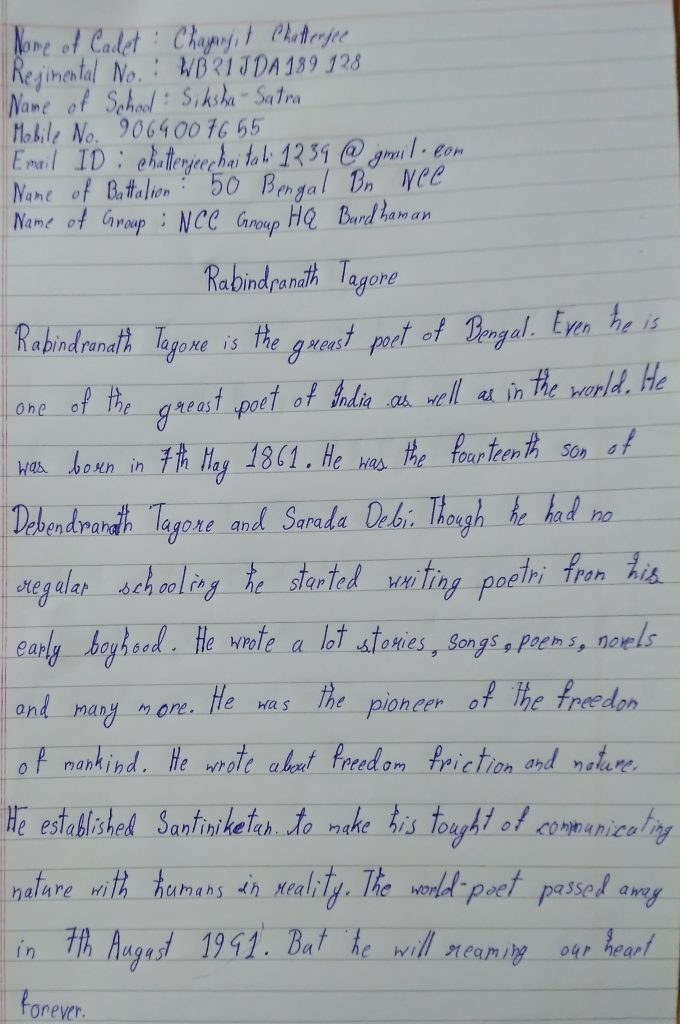 Name of Cadet : Chayanjit Chatterjee
Regimental No. : WB21JDA189128
Name of School : Siksha-Satra
Mobile No. 9064007655
Email ID : chatterjeechaitali1234@gmail.com
Name of Battalion : 50 Bengal Bn NCC
Name of Group : NCC Group HQ Burdhaman
Rabindranath Tagore
Rabindranath Tagore is the greast poet of Bengal. Even he is
one of the greast poet of India as well as in the world. He
was born in 7th May 1861. He was the fourteenth son of
Debendranath Tagore and Sarada Debi. Though he had no
regular schooling he started writing poetri from his
early boyhood. He wrote a lot stories, songs, poems, novels
and many more. He was the pioneer of the freedon
of mankind. He wrote about freedom friction and nature.
He established Santiniketan. to make his tought of communicating
nature with humans in reality. The world-poet passed away
in 7th August 1941. But he will reaming our heart
forever.